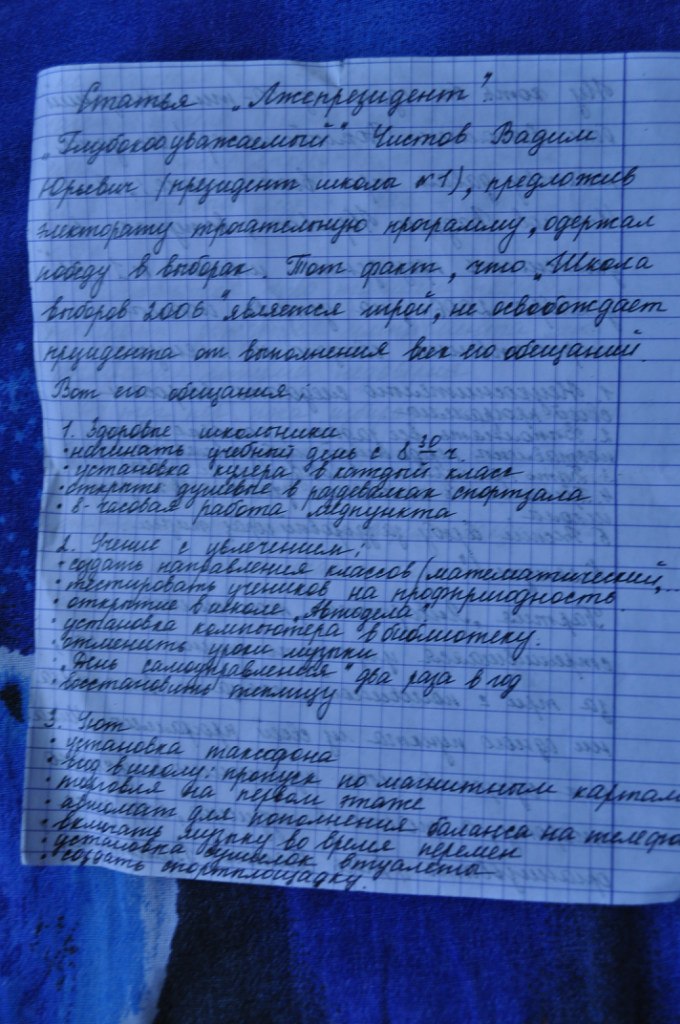 Статья „Лжепрезидент"
„Глубокоуважаемый" Чистов Вадим
Юрьевич (президент школы №1), предложив
электорату трогательную программу, одержал
победу в выборах. Тот факт, что „Школа
выборов 2006" является игрой, не освобождает
президента от выполнения всех его обещаний.
Вот его обещания:
1. Здоровые школьники
• начинать учебный день с 8 30 ч.
• установка кулера в каждый класс
• открыть душевые в раздевалках спортзала
• 8-часовая работа медпункта
2. Учение с увлечением:
• создать направления классов (математический,...
• тестировать учеников на профпригодность
• открытие в школе „Автодела"
• установка компьютера в библиотеку.
• отменить уроки музыки
• „День самоуправления" два раза в год
• восстановить теплицу
3. Уют
• установка таксофона
• вход в школу: пропуск по магнитным картам
• торговля на первом этаже
• автомат для пополнения баланса на телефо
• включать музыку во время перемен
• установка сушилок в туалеты
• создать спортплощадку.